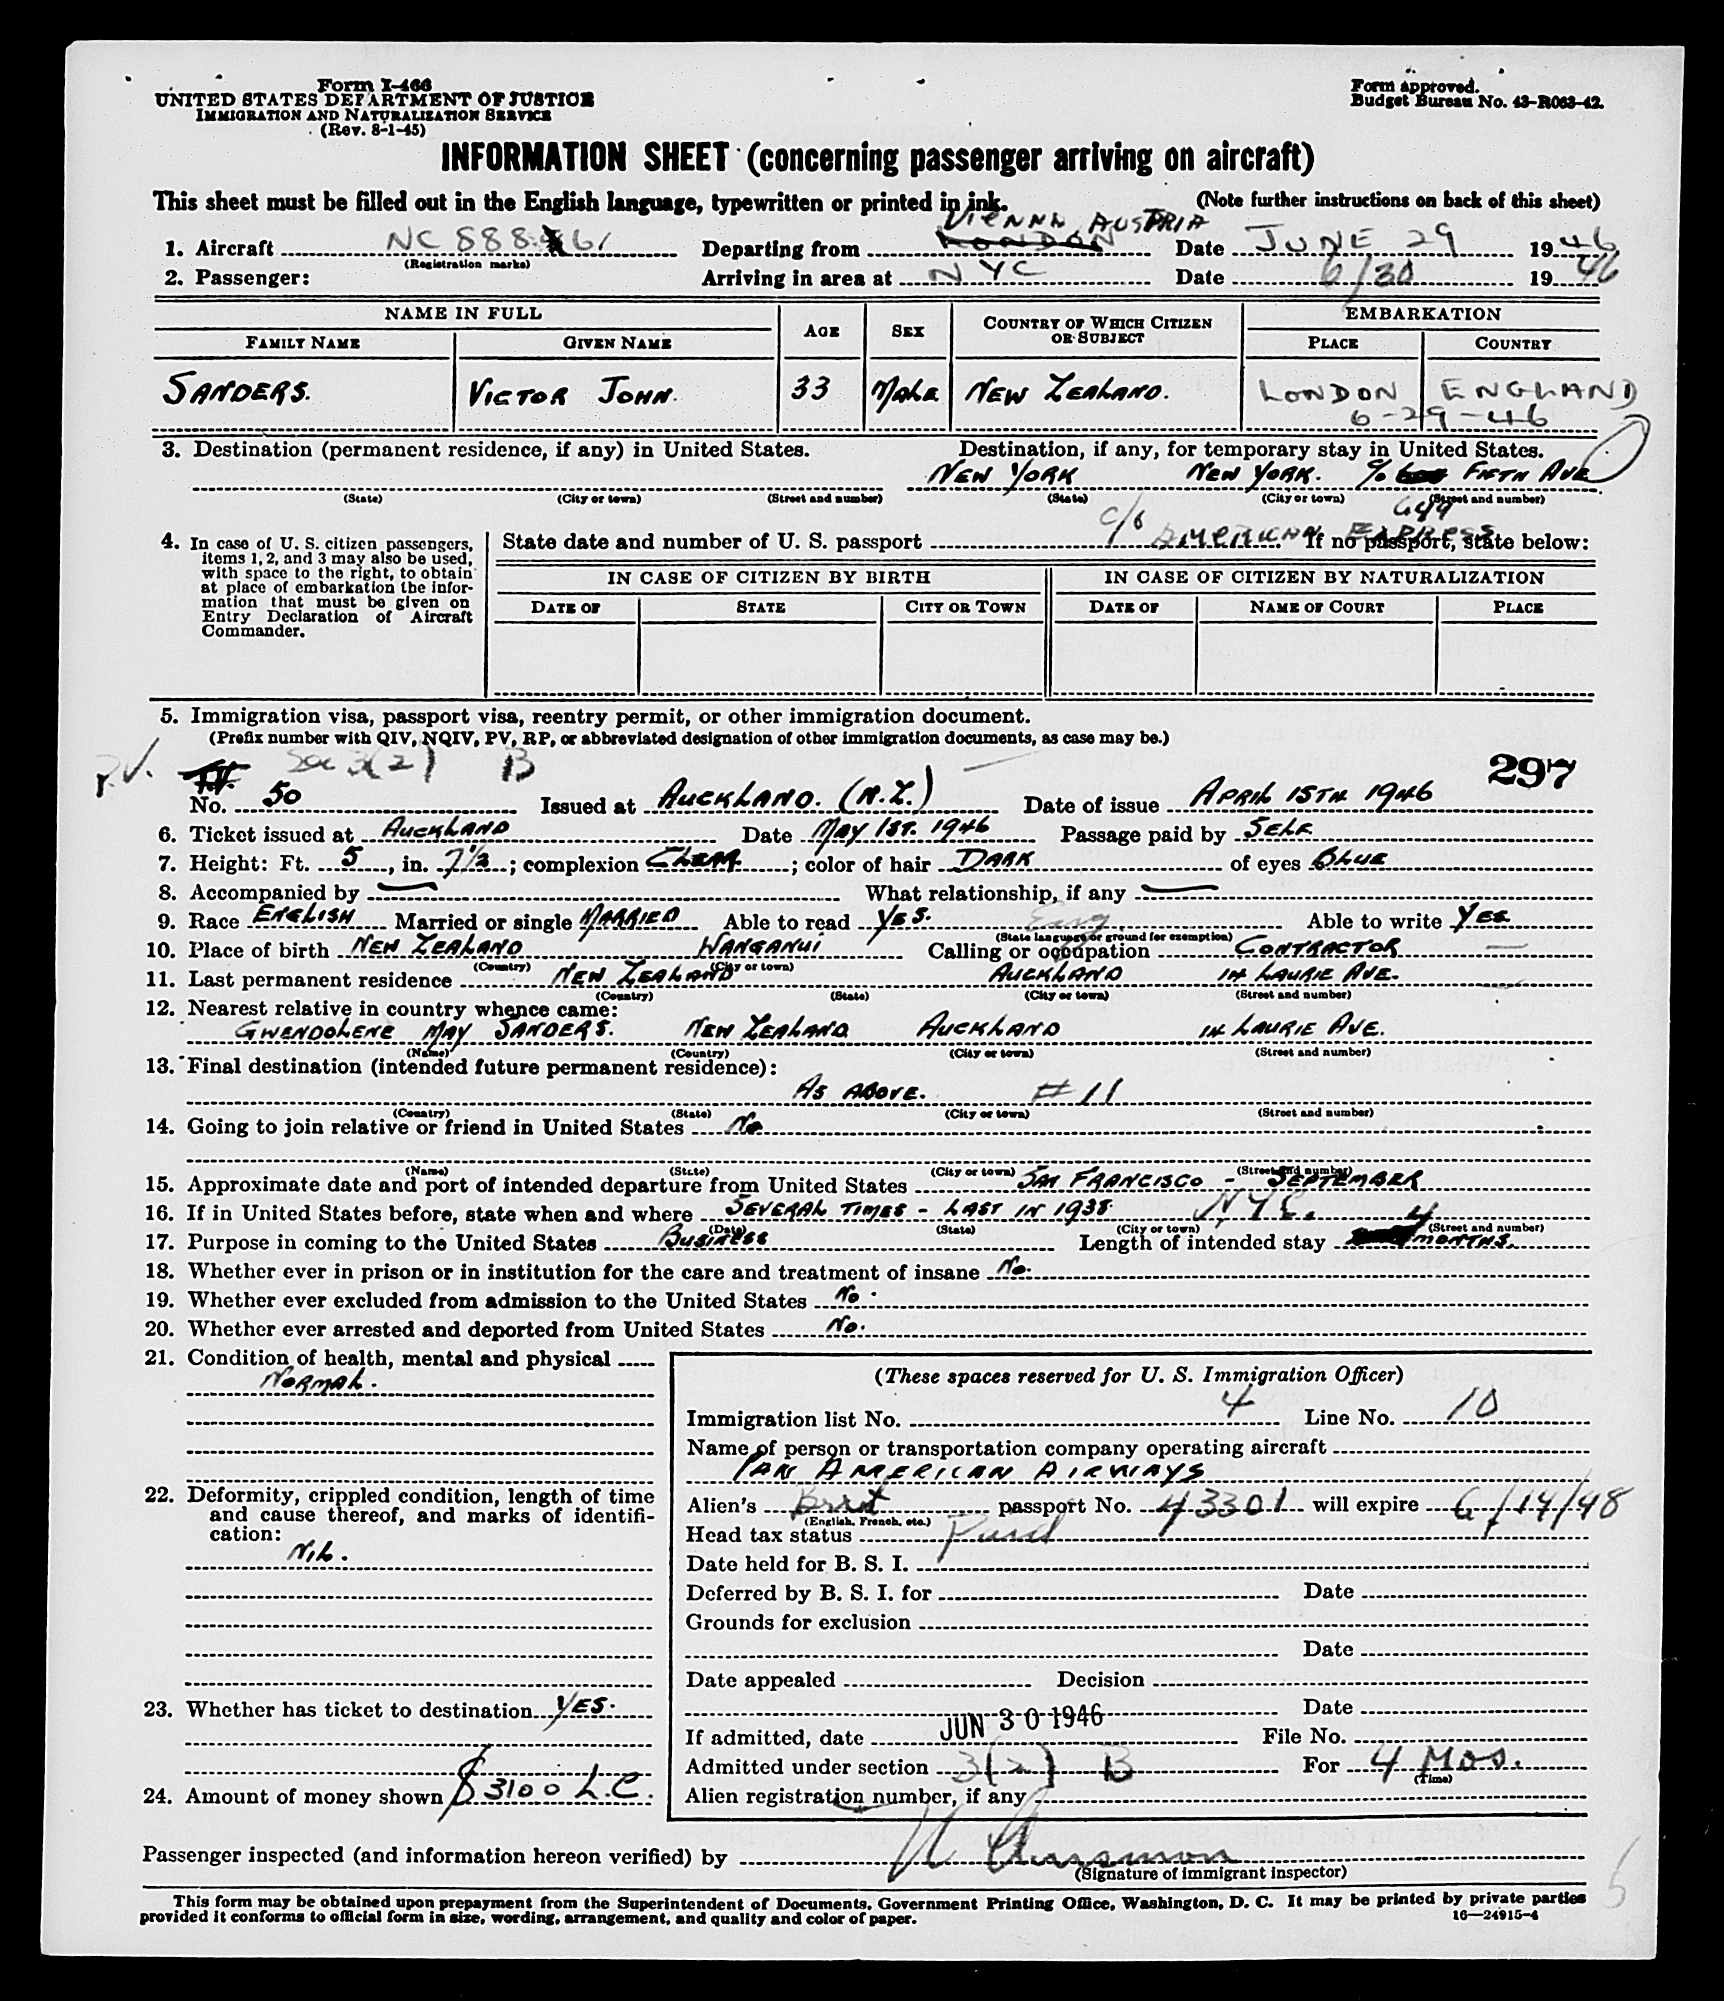 Form I-466
UNITED STATES DEPARTMENT OF JUSTICE
IMMIGRATION AND NATURALIZATION SERVICE
(Rev. 8-1-45)
Form approved.
Budget Bureau No. 43-R063-42.
INFORMATION SHEET (concerning passenger arriving on aircraft)
This sheet must be filled out in the English language, typewritten or printed in ink. (Note further instructions on back of this sheet)
VIENNA AUSTRIA
1. Aircraft NC 888 61 Departing from LONDON Date JUNE 29 1946
(Registration marks)
2. Passenger: Arriving in area at NYC Date 6/30 1946
NAME IN FULL AGE SEX COUNTRY OF WHICH CITIZEN OR SUBJECT EMBARKATION
FAMILY NAME GIVEN NAME PLACE COUNTRY
SANDERS. VICTOR JOHN. 33 MALE NEW ZEALAND. LONDON ENGLAND
6-29-46
3. Destination (permanent residence, if any) in United States. Destination, if any, for temporary stay in United States.
NEW YORK NEW YORK. % FIFTH AVE
(State) (City or town) (Street and number) (State) (City or town) (Street and number)
649
c/o AMERICAN EXPRESS
4. In case of U. S. citizen passengers, items 1, 2, and 3 may also be used, with space to the right, to obtain at place of embarkation the information that must be given on Entry Declaration of Aircraft Commander.
State date and number of U. S. passport If no passport, state below:
IN CASE OF CITIZEN BY BIRTH IN CASE OF CITIZEN BY NATURALIZATION
DATE OF STATE CITY OR TOWN DATE OF NAME OF COURT PLACE
5. Immigration visa, passport visa, reentry permit, or other immigration document.
(Prefix number with QIV, NQIV, PV, RP, or abbreviated designation of other immigration documents, as case may be.)
P.V. Sec 3(2) B 297
No. 50 Issued at AUCKLAND. (N.Z.) Date of issue APRIL 15TH 1946
6. Ticket issued at AUCKLAND Date MAY 1ST. 1946 Passage paid by SELF
7. Height: Ft. 5, in. 7½; complexion CLEAR; color of hair DARK of eyes BLUE
8. Accompanied by — What relationship, if any —
9. Race ENGLISH Married or single MARRIED Able to read YES. Eng Able to write YES
(State language or ground for exemption)
10. Place of birth NEW ZEALAND WANGANUI Calling or occupation CONTRACTOR
(Country) (City or town)
11. Last permanent residence NEW ZEALAND AUCKLAND 14 LAURIE AVE.
(Country) (State) (City or town) (Street and number)
12. Nearest relative in country whence came:
GWENDOLENE MAY SANDERS. NEW ZEALAND AUCKLAND 14 LAURIE AVE.
(Name) (Country) (City or town) (Street and number)
13. Final destination (intended future permanent residence):
AS ABOVE. #11
(Country) (State) (City or town) (Street and number)
14. Going to join relative or friend in United States NO
(Name) (State) (City or town) (Street and number)
15. Approximate date and port of intended departure from United States SAN FRANCISCO - SEPTEMBER
16. If in United States before, state when and where SEVERAL TIMES - LAST IN 1938. NYC.
(Date) (State) (City or town) (Street and number)
17. Purpose in coming to the United States BUSINESS Length of intended stay 4 MONTHS.
18. Whether ever in prison or in institution for the care and treatment of insane NO.
19. Whether ever excluded from admission to the United States NO.
20. Whether ever arrested and deported from United States NO.
21. Condition of health, mental and physical
NORMAL.
22. Deformity, crippled condition, length of time and cause thereof, and marks of identification:
NIL.
23. Whether has ticket to destination YES.
24. Amount of money shown $3100 L.C.
(These spaces reserved for U. S. Immigration Officer)
Immigration list No. 4 Line No. 10
Name of person or transportation company operating aircraft
PAN AMERICAN AIRWAYS
Alien's Brit passport No. 43301 will expire 6/14/48
(English, French, etc.)
Head tax status Paid
Date held for B. S. I.
Deferred by B. S. I. for Date
Grounds for exclusion
Date
Date appealed Decision
Date
If admitted, date JUN 30 1946 File No.
Admitted under section 3(2) B For 4 MOS.
(Time)
Alien registration number, if any
Passenger inspected (and information hereon verified) by
(Signature of immigrant inspector)
This form may be obtained upon prepayment from the Superintendent of Documents, Government Printing Office, Washington, D. C. It may be printed by private parties
provided it conforms to official form in size, wording, arrangement, and quality and color of paper.
16—24915-4